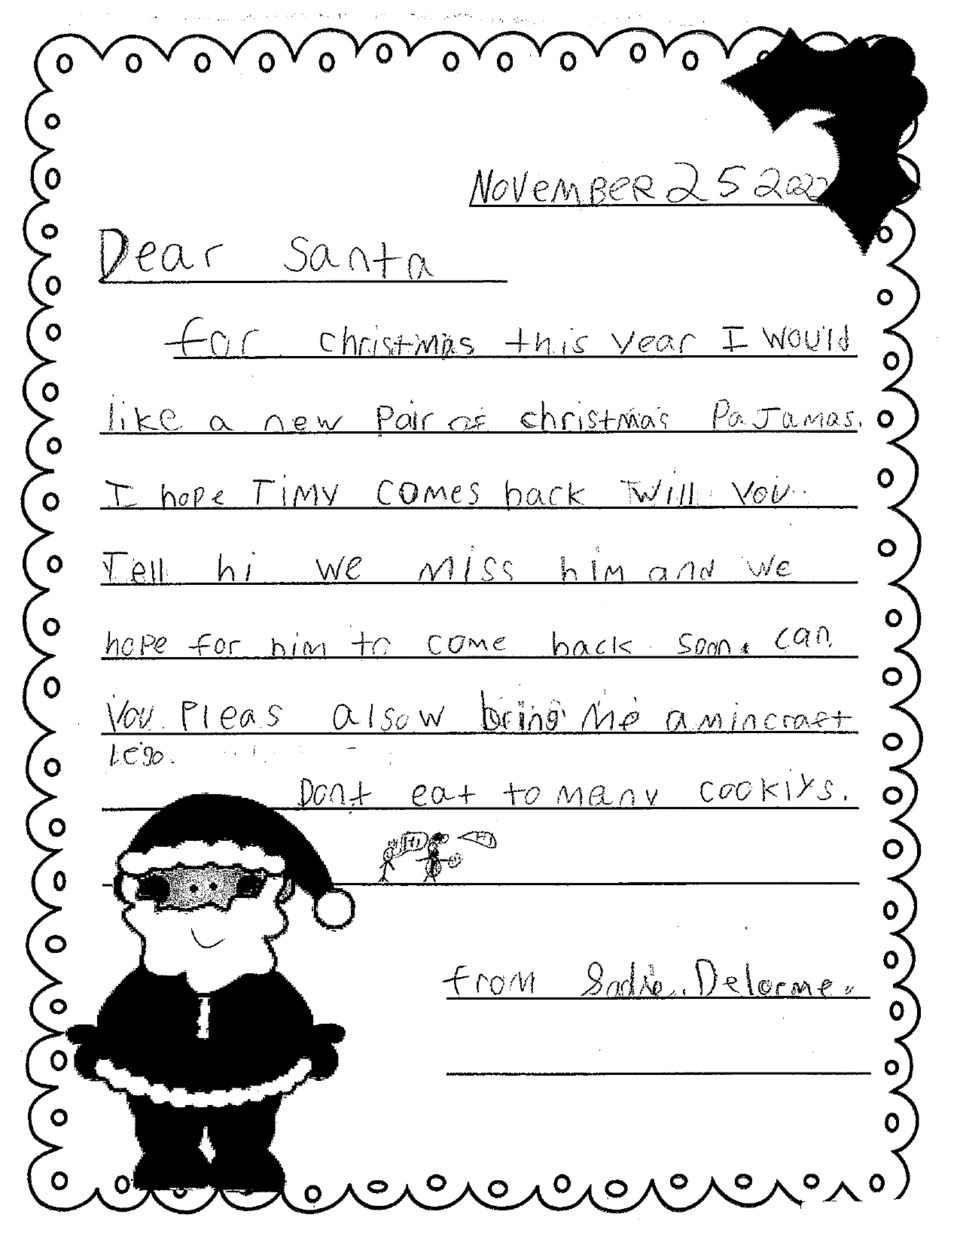 NOVEMBER 25 2022
Dear Santa
for christmas this year I would
like a new pair of christmas PaJamas.
I hope Timy comes back Will you
Tell hi we miss him and we
hope for him to come back soon. can
you Pleas alsow bring me a mincraft
Lego.
Dont eat to many cookiys.
from Sadie. Delorme.